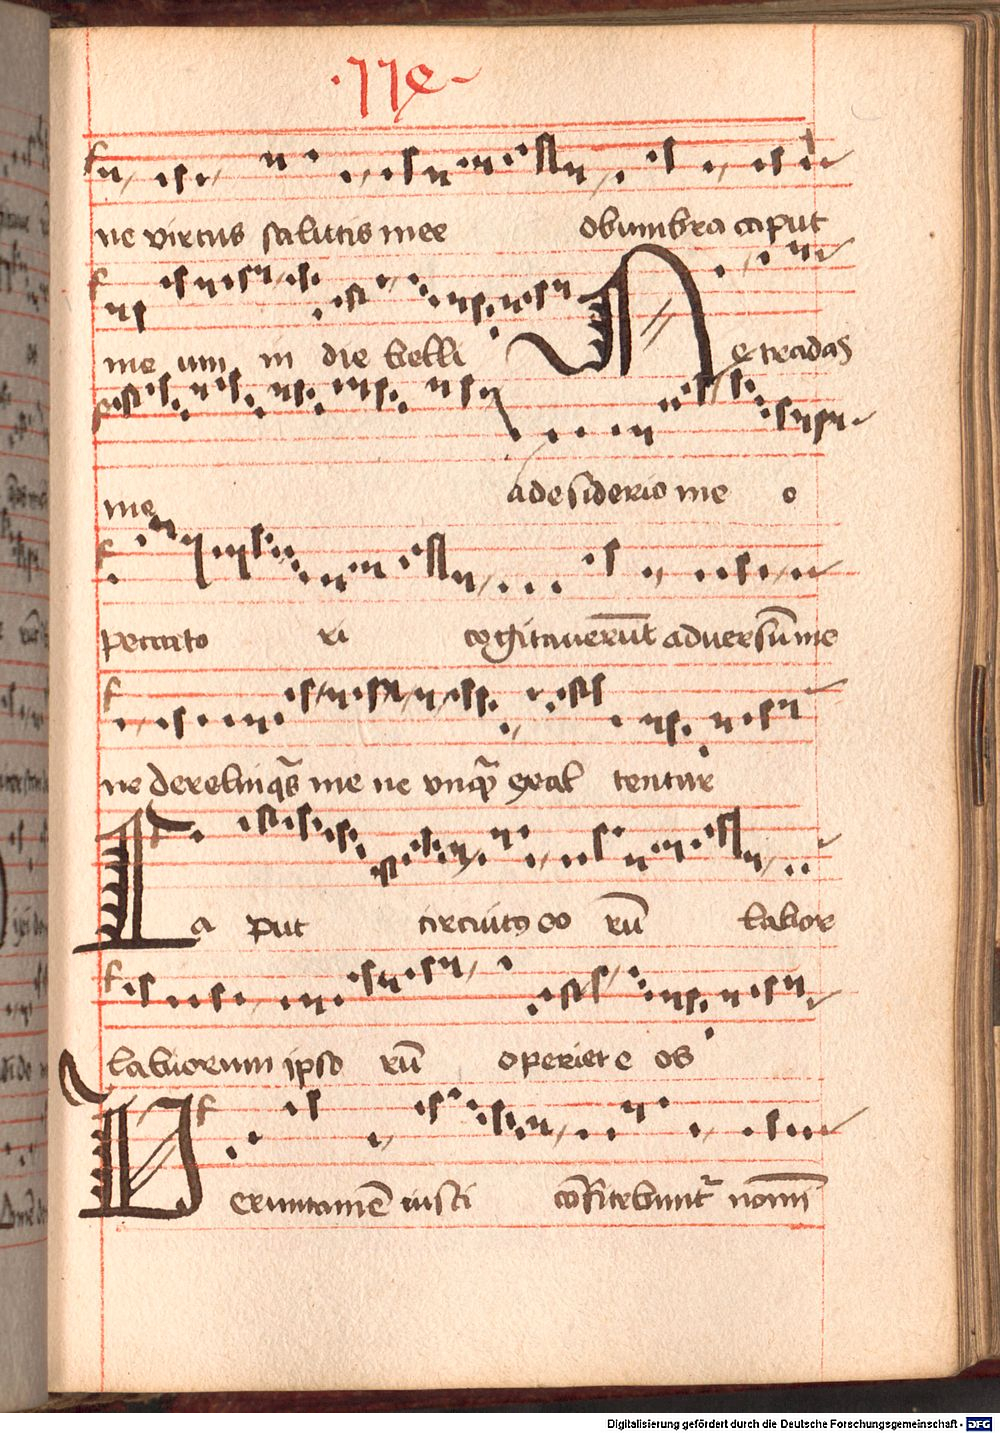 ·119·
ne virtus salutis mee obumbra caput
me um in die belli Ne tradas
me a desiderio me o
peccato ri cogitaverūt adversū me
ne derelinqs̄ me ne vnqꝫ exal tentur
Ca put circuitꝰ eo rū labor
labiorum ipso rū operiet e os
Veruntamē iusti cōfitebunt nomī
Digitalisierung gefördert durch die Deutsche Forschungsgemeinschaft - DFG